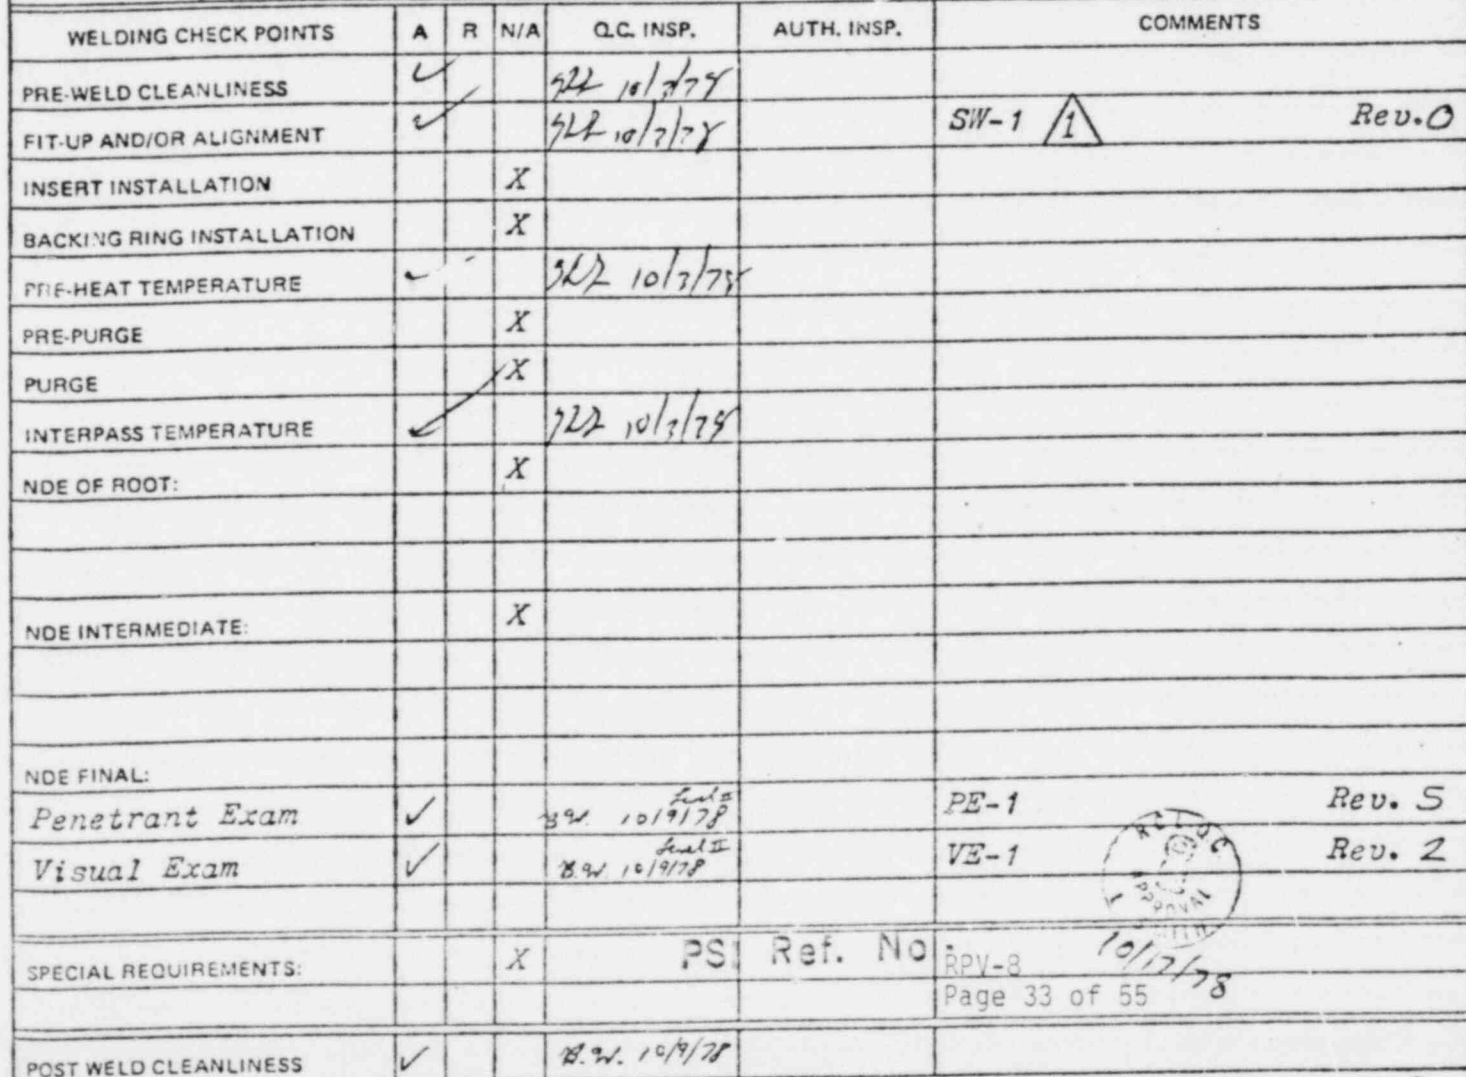 WELDING CHECK POINTS A R N/A Q.C. INSP. AUTH. INSP. COMMENTS
PRE-WELD CLEANLINESS ✓ 10/3/78
FIT-UP AND/OR ALIGNMENT ✓ 10/3/78 SW-1 1 Rev. 0
INSERT INSTALLATION X
BACKING RING INSTALLATION X
PRE-HEAT TEMPERATURE ✓ 10/3/78
PRE-PURGE X
PURGE X
INTERPASS TEMPERATURE ✓ 10/3/78
NDE OF ROOT: X
NDE INTERMEDIATE: X
NDE FINAL:
Level II
Penetrant Exam ✓ B.W. 10/9/78 PE-1 Rev. 5
Level II
Visual Exam ✓ B.W. 10/9/78 VE-1 Rev. 2
QC
APPROVAL
SMITH
10/17/78
PSI Ref. No.
SPECIAL REQUIREMENTS: X RPV-8
Page 33 of 55
POST WELD CLEANLINESS ✓ B.W. 10/9/78